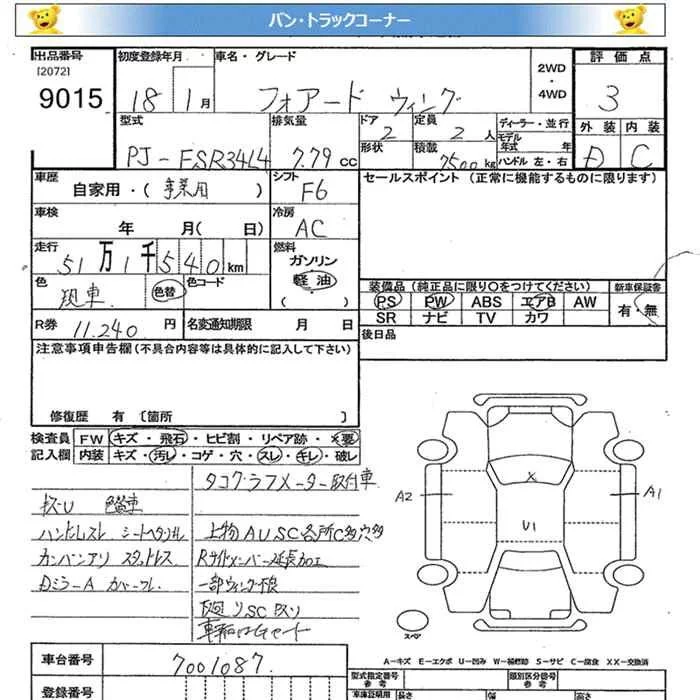 バン・トラックコーナー
出品番号 [2072] 9015
初度登録年月 18 1月
車名・グレード フォアード ウィング
2WD ・ 4WD
評価点 3
外装 D 内装 C
型式 PJ-FSR34L4
排気量 7.79 cc
ドア 2
形状
定員 2 人
積載 7500 kg
ディーラー・並行
モデル年式 年
ハンドル 左・右
車歴 自家用・(事業用)
シフト F6
車検 年 月( 日)
冷房 AC
走行 51万1千540km
燃料 ガソリン 軽油 ( )
色 現車 色替 色コード
R券 11.240 円
名変通知期限 月 日
セールスポイント (正常に機能するものに限ります)
装備品 (純正品に限り○をつけてください)
PS PW ABS エアB AW
SR ナビ TV カワ
新車保証書 有・無
後日品
注意事項申告欄 (不具合内容等は具体的に記入して下さい)
修復歴 有 〔箇所 〕
検査員記入欄
FW キズ・飛石・ヒビ割・リペア跡・×要
内装 キズ・汚レ・コゲ・穴・スレ・キレ・破レ
タコグラフメーター取付車
キズU 色替車
ハンドルスレ シートヘタリ
上物AUSC各所C多穴多
カンバンアリ スタッドレス
Rサイドメンバー延長加工
DミラーA カバーワレ
一部ウィング不良
下廻りSC
A2 X U1 A1
スペア
A-キズ E-エクボ U-凹み W-補修跡 S-サビ C-腐食 XX-交換済
車台番号 7001087
登録番号
型式指定番号 参考
類別区分番号 参考
車庫証明用 長さ 幅 高さ